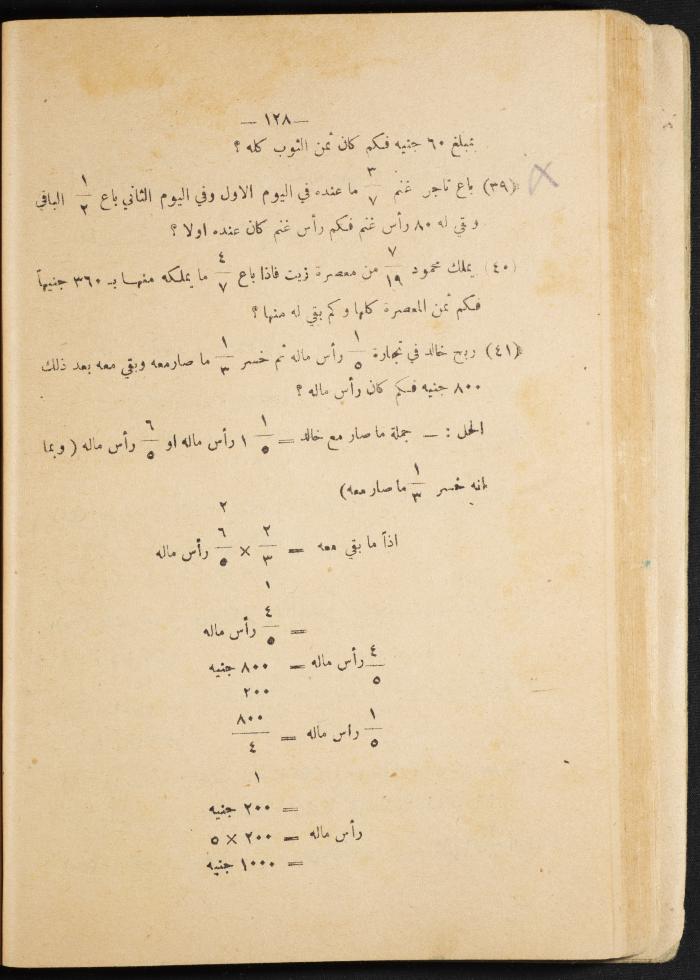 — ١٢٨ —
بمبلغ ٦٠ جنيه فكم كان ثمن الثوب كله ؟
(٣٩) باع تاجر غنم ٣/٧ ما عنده في اليوم الاول وفي اليوم الثاني باع ١/٢ الباقي
وبقي له ٨٠ رأس غنم فكم رأس غنم كان عنده اولا ؟
(٤٠) يملك محمود ٧/١٩ من معصرة زيت فاذا باع ٤/٧ ما يملكه منها بـ ٣٦٠ جنيهاً
فكم ثمن المعصرة كلها وكم بقي له منها ؟
(٤١) ربح خالد في تجارة ١/٥ رأس ماله ثم خسر ١/٣ ما صار معه وبقي معه بعد ذلك
٨٠٠ جنيه فكم كان رأس ماله ؟
الحل : — جملة ما صار مع خالد = ١ ١/٥ رأس ماله او ٦/٥ رأس ماله ( وبما
انه خسر ١/٣ ما صار معه)
٢
اذاً ما بقي معه = ٢/٣ × ٦/٥ رأس ماله
١
= ٤/٥ رأس ماله
٤/٥ رأس ماله = ٨٠٠ جنيه
٢٠٠
١/٥ راس ماله = ٨٠٠/٤
١
= ٢٠٠ جنيه
رأس ماله = ٢٠٠ × ٥
= ١٠٠٠ جنيه